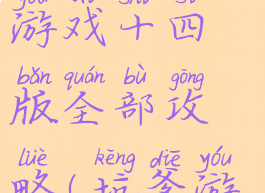 yóu xì shí sì
游戏十四
bǎn quán bù gōng
版全部攻
lüè ( kēng diē yóu
略(坑爹游